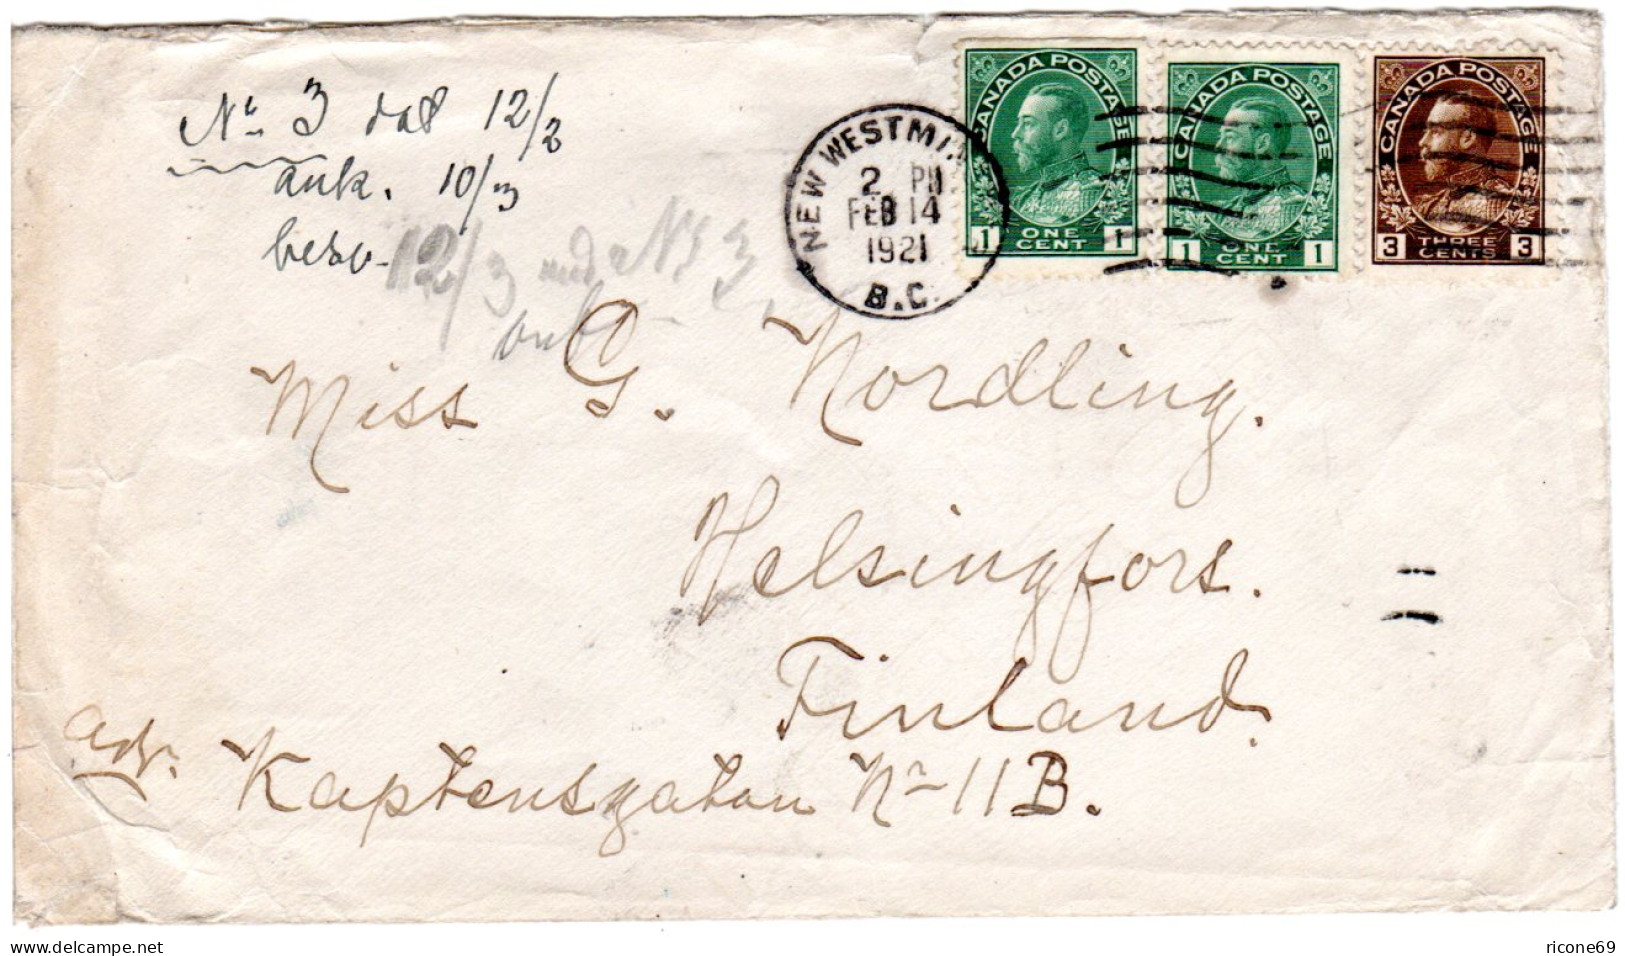 Nr 3 dat 12/2
ank. 10/3
besv.
12/3 med Nr 3
CANADA POSTAGE
1 ONE CENT 1
CANADA POSTAGE
1 ONE CENT 1
CANADA POSTAGE
3 THREE CENTS 3
NEW WESTMIN
2 PM
FEB 14
1921
B.C.
Miss G. Nordling.
Helsingfors.
Finland.
adr. Kaptensgatan Nr 11 B.
delcampe.net
ricone69